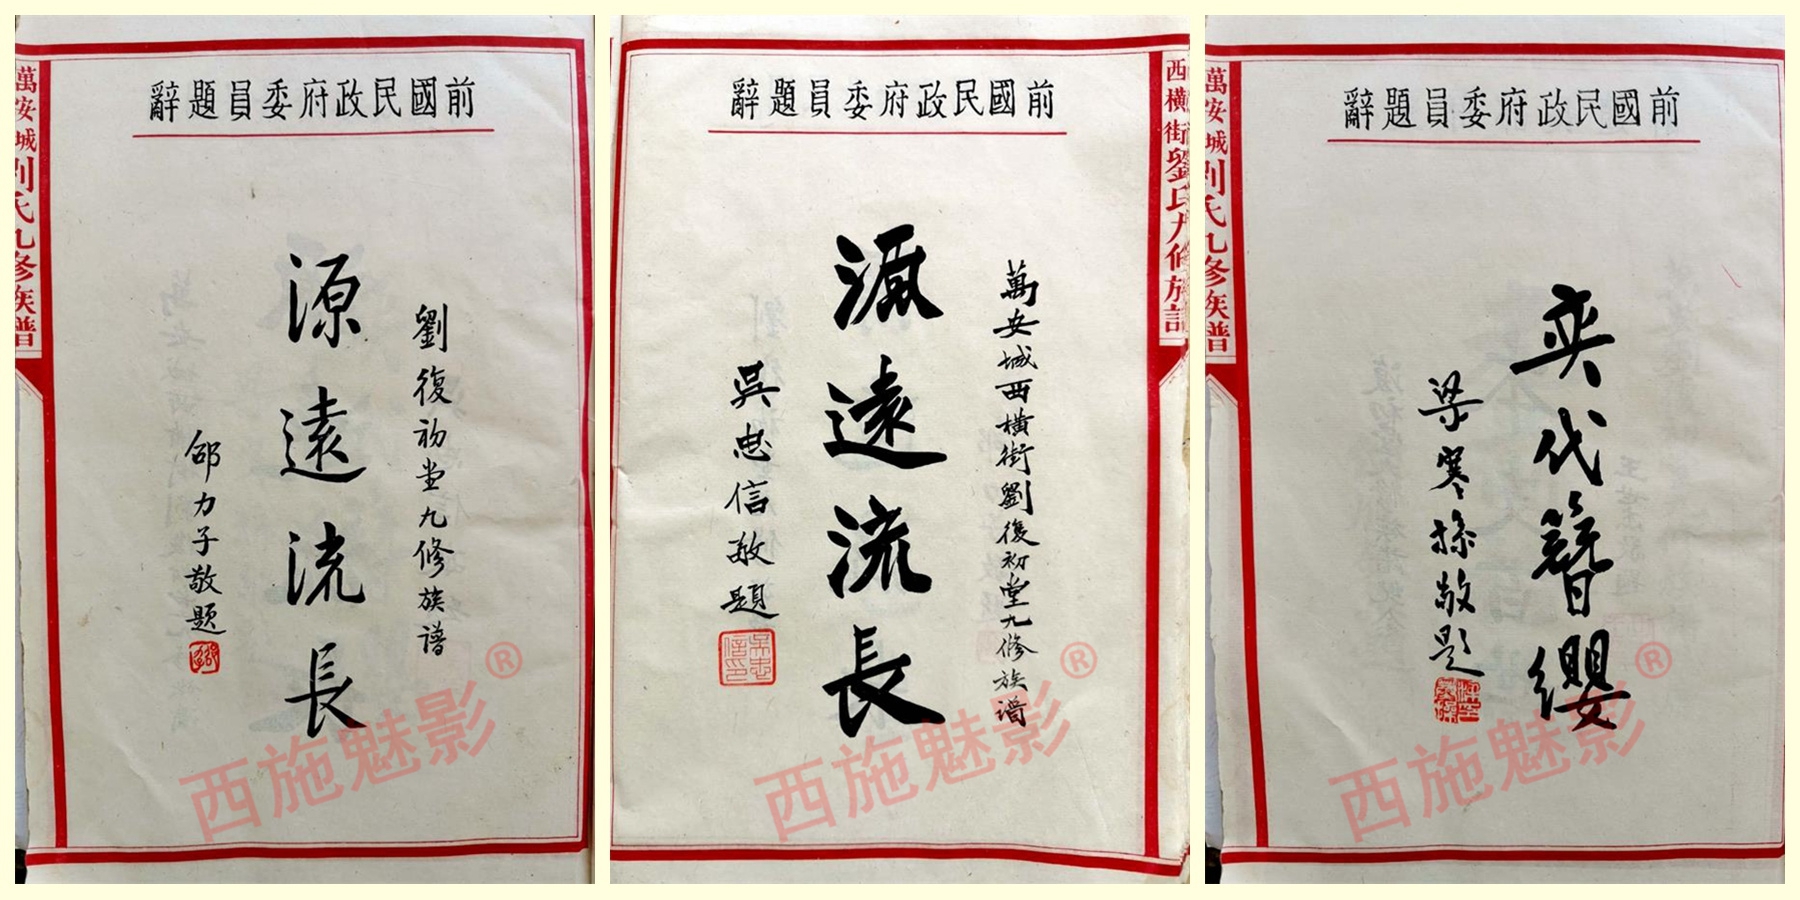 前國民政府委員題辭
萬安城劉氏九修族譜
劉復初堂九修族譜
源遠流長
邵力子敬題
西施魅影®
前國民政府委員題辭
西橫街劉氏九修族譜
萬安城西橫街劉復初堂九修族譜
源遠流長
吳忠信敬題
吳忠信印
西施魅影®
前國民政府委員題辭
萬安城劉氏九修族譜
奕代簪纓
梁寒操敬題
西施魅影®